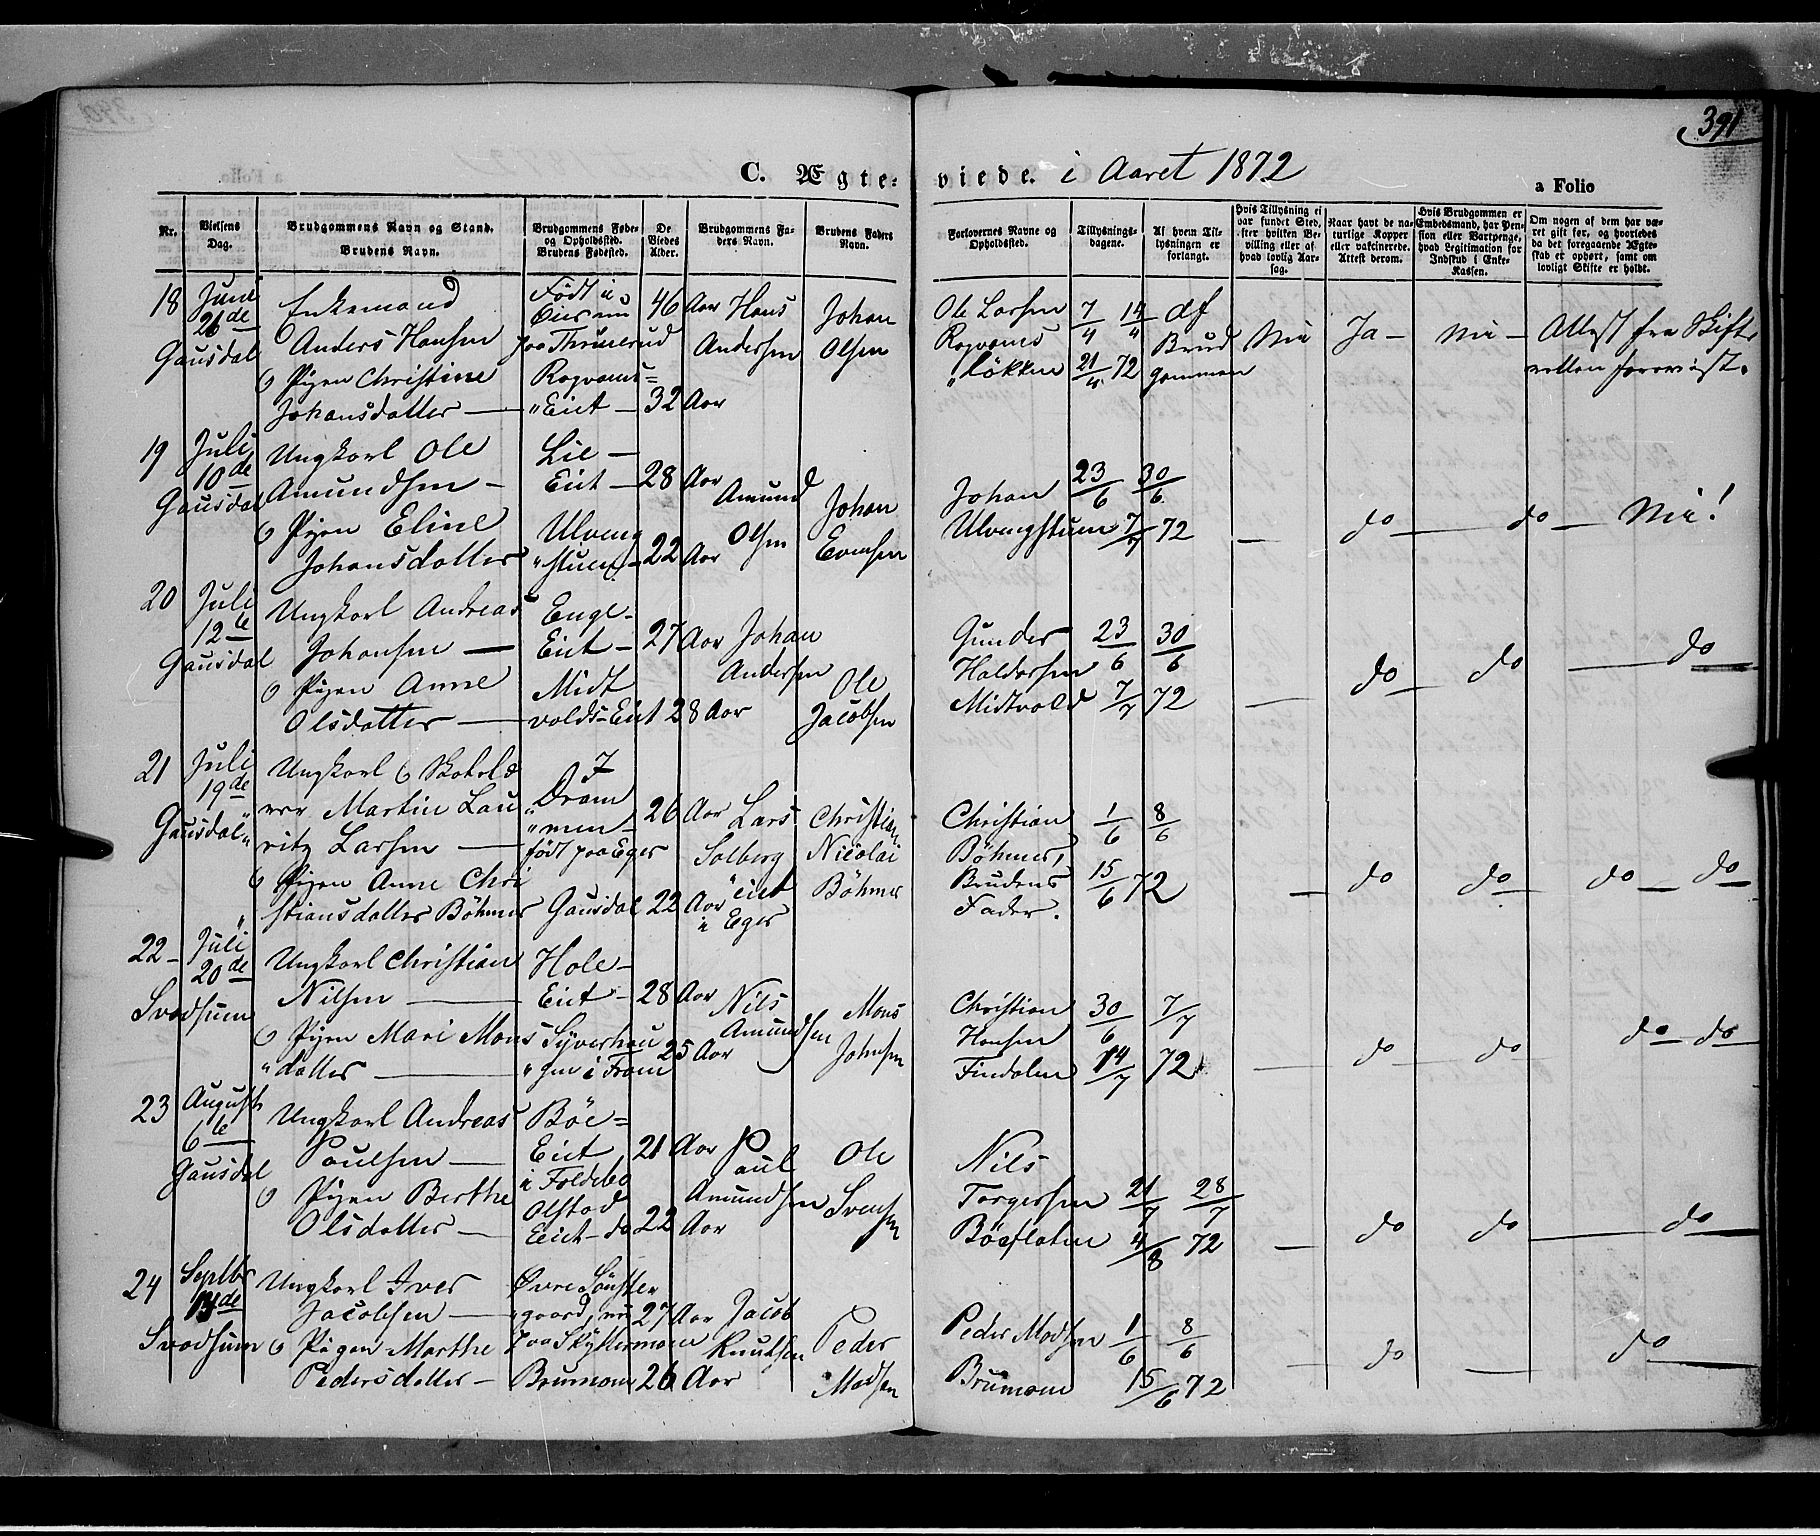 391
C. Ægte- viede. i Aaret 1872
a Folio
Nr.
Vielsens Dag.
Brudgommens Navn og Stand.
Brudens Navn.
Brudgommens Føde- og Opholdssted.
Brudens Fødested.
De Viedes Alder.
Brudgommens Faders Navn.
Brudens Faders Navn.
Forlovernes Navne og Opholdssted.
Tillysningsdagene.
Af hvem Tillysningen er forlangt.
Hvis Tillysning ei har fundet Sted, efter hvilken Bevilling eller af hvad lovlig Aarsag.
Naar havt de naturlige Kopper eller vaksinerede. Attest derom.
Hvis Brudgommen er Embedsmand, har Pension eller Vartpenge, hvad Legitimation for Indskud i Enke-Kassen.
Om nogen af dem har været gift før, og hvorledes da det foregaaende Ægteskab er ophørt, samt om lovligt Skifte er holdt.
18 Juni 26de Gausdal
Enkemand Anders Hansen
Pigen Christine Johansdatter
Født i
paa Thrulerud
46 Aar
32 Aar
Hans Andersen
Johan Olsen
Ole Larsen
løkken
7/4 14/4 21/4 72
af Brudgommen
Nei Ja - Nei -
Attest fra Skifteretten forevist.
19 Juli 10de Gausdal
Ungkarl Ole Amundsen -
Pigen Eline Johansdatter
Lie - Eiet -
28 Aar
22 Aar
Amund Olsen
Johan Evensen
Johan Ulvengstuen
23/6 30/6 7/7 72
- do - do - Nei!
20 Juli 12te Gausdal
Ungkarl Andreas Johansen -
Pigen Anne Olsdatter -
Enge- Eiet -
Midtvolds-Eiet
27 Aar
28 Aar
Johan Andersen
Ole Jacobsen
Gunder Haldorsen Midtvold
23/6 30/6 7/7 72
- do - do - do
21 Juli 19de Gausdal
Ungkarl Martin Lauritz Larsen -
Pigen Anne Christiansdatter Böhmer
I Drammen -
født paa Eger
Gausdal
26 Aar
22 Aar
Lars Solberg eiet i Eger
Christian Nicolai Böhmer
Christian Böhmer, Brudens Fader.
1/6 8/6 15/6 72
- do do - do - do
22 - Juli 20de Svadsum
Ungkarl Christian Nilsen -
Pigen Mari Monsdatter -
Hole- Eiet -
Syverhaugen i Fron
28 Aar
25 Aar
Nils Amundsen
Mons Johnsen
Christian Hansen Findalen
30/6 7/7 14/7 72
- do - do - do - do
23 August 6te Gausdal
Ungkarl Andreas Paulsen -
Pigen Berthe Olsdatter -
Böe- Eiet i Foldebo
Olstad Eiet - do
21 Aar
22 Aar
Paul Amundsen
Ole Svensen
Nils Torgersen Böeflaten
21/7 28/7 4/8 72
- do do - do
24 Septbr 13de Svadsum
Ungkarl Iver Jacobsen -
Pigen Marthe Pedersdatter -
Øvre
paa Skyttermoen
Brumoen
27 Aar
26 Aar
Jacob Knudsen
Peder Madsen
Peder Madsen Brumoen
1/6 8/6 15/6 72
- do - do